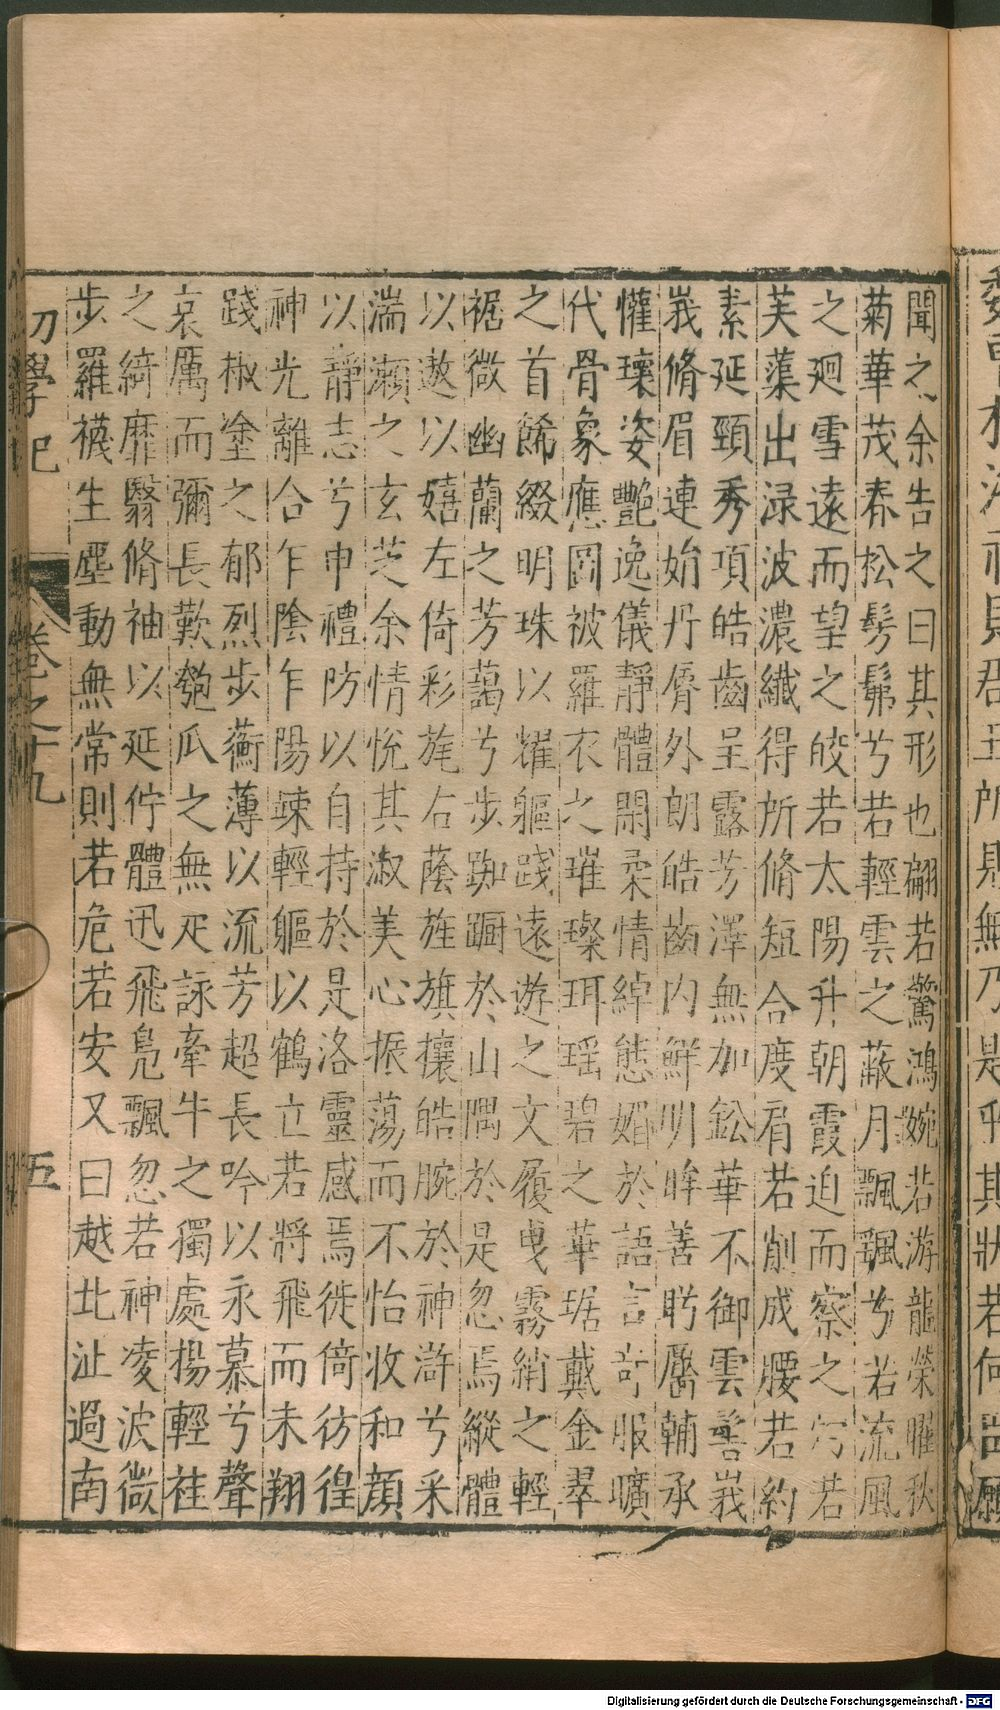 聞之余告之曰其形也翩若驚鴻婉若游龍榮曜秋
菊華茂春松髣髴兮若輕雲之蔽月飄颻兮若流風
之廻雪遠而望之皎若太陽升朝霞迫而察之灼若
芙蕖出渌波濃纖得所脩短合度肩若削成腰若約
素延頸秀項皓齒呈露芳澤無加鉛華不御雲髻峩
峩脩眉連始丹脣外朗皓齒内鮮明眸善眄靨輔承
懽瓌姿艷逸儀靜體閑柔情綽態媚於語言竒服曠
代骨象應圖被羅衣之璀璨珥瑶碧之華琚戴金翠
之首餙綴明珠以耀軀踐遠遊之文履曵霧綃之輕
裾微幽蘭之芳藹兮步踟蹰於山隅於是忽焉縱體
以遨以嬉左倚彩旄右蔭旌旗攘皓腕於神滸兮采
湍瀨之玄芝余情悅其淑美心振蕩而不怡收和顔
以靜志兮申禮防以自持於是洛靈感焉徙倚彷徨
神光離合乍陰乍陽竦輕軀以鶴立若將飛而未翔
踐椒塗之郁烈步蘅薄以流芳超長吟以永慕兮聲
哀厲而彌長歎匏瓜之無疋詠牽牛之獨處揚輕袿
之綺靡翳脩袖以延佇體迅飛鳧飄忽若神凌波微
步羅襪生塵動無常則若危若安又曰越北沚過南
初學記
卷之十九
五
Digitalisierung gefördert durch die Deutsche Forschungsgemeinschaft - DFG